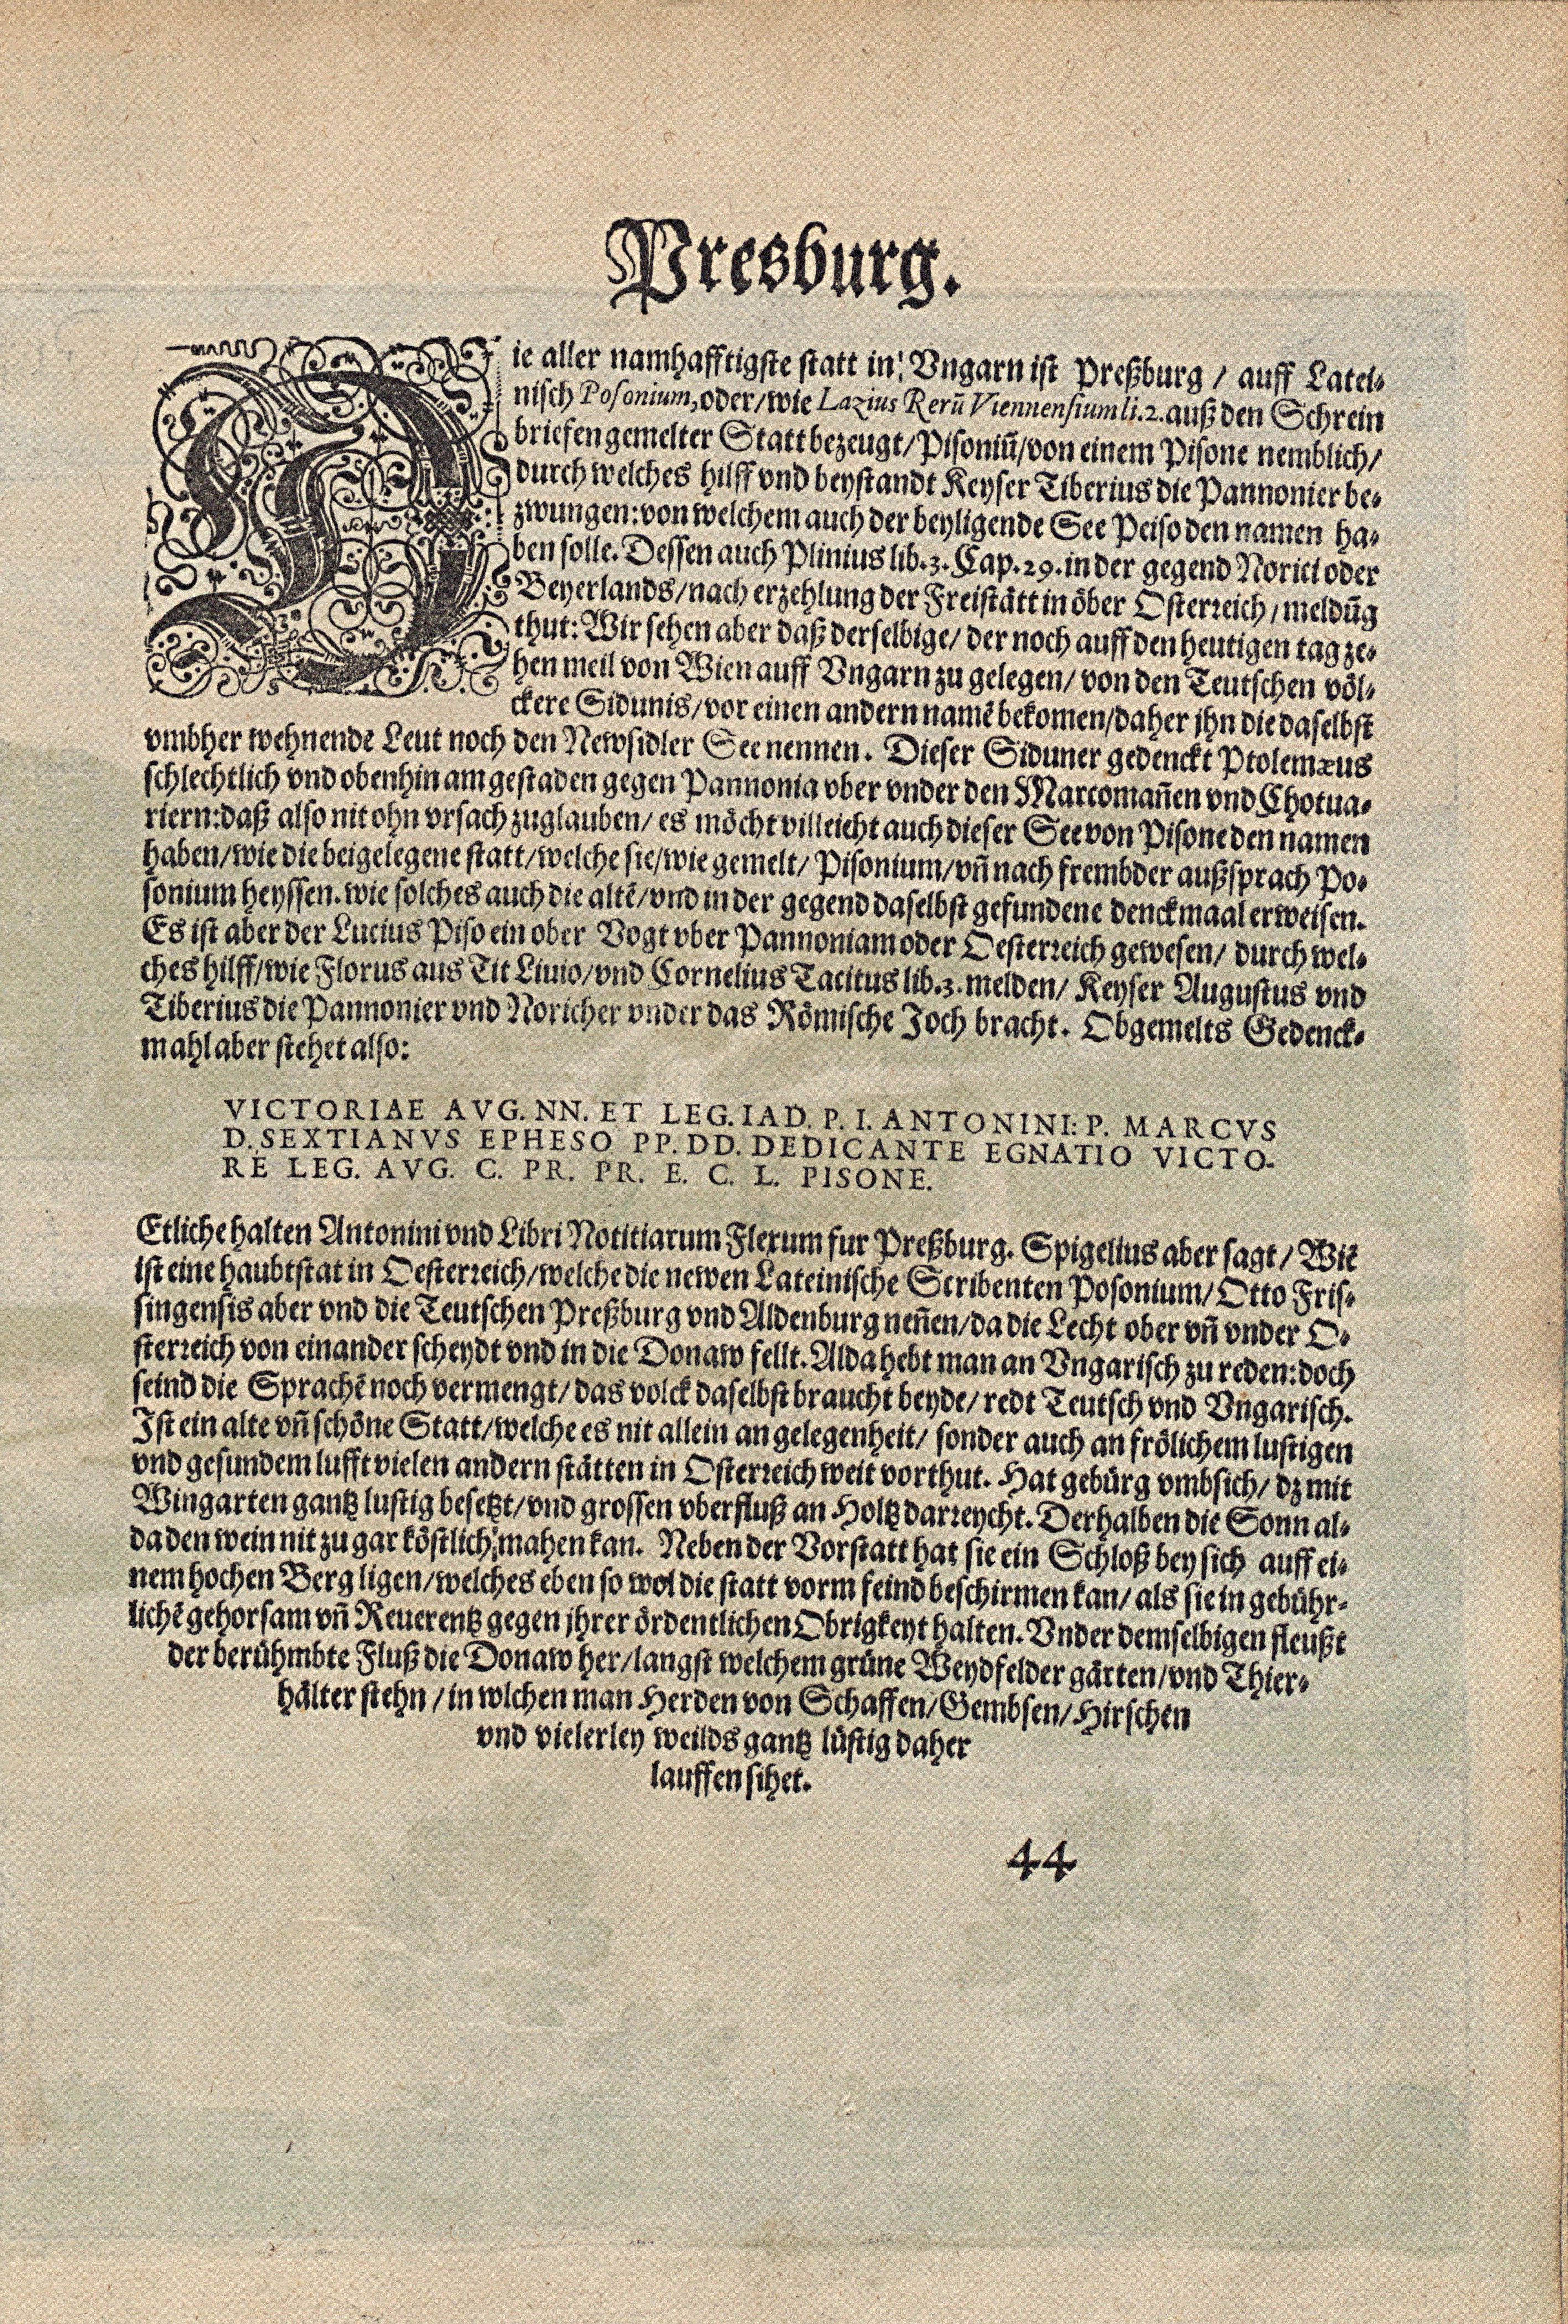 Presburg.
Die aller namhafftigste statt in Vngarn ist Preßburg / auff Latei⸗
nisch Posonium, oder / wie Lazius Rerū Viennensium li. 2. auß den Schrein
briefen gemelter Statt bezeugt / Pisoniū / von einem Pisone nemblich /
durch welches hilff vnd beystandt Keyser Tiberius die Pannonier be⸗
zwungen: von welchem auch der beyligende See Peiso den namen ha⸗
ben solle. Dessen auch Plinius lib. 3. Cap. 29. in der gegend Norici oder
Beyerlands / nach erzehlung der Freistätt in öber Osterreich / meldūg
thut: Wir sehen aber daß derselbige / der noch auff den heutigen tag ze⸗
hen meil von Wien auff Vngarn zu gelegen / von den Teutschen völ⸗
ckere Sidunis / vor einen andern namē bekomen / daher jhn die daselbst
vmbher wehnende Leut noch den Newsidler See nennen. Dieser Siduner gedenckt Ptolemæus
schlechtlich vnd obenhin am gestaden gegen Pannonia vber vnder den Marcomañen vnd Chotua⸗
riern: daß also nit ohn vrsach zuglauben / es möcht villeicht auch dieser See von Pisone den namen
haben / wie die beigelegene statt / welche sie / wie gemelt / Pisonium / vñ nach frembder außsprach Po⸗
sonium heyssen. wie solches auch die altē / vnd in der gegend daselbst gefundene denckmaal erweisen.
Es ist aber der Lucius Piso ein ober Vogt vber Pannoniam oder Oesterreich gewesen / durch wel⸗
ches hilff / wie Florus aus Tit Liuio / vnd Cornelius Tacitus lib. 3. melden / Keyser Augustus vnd
Tiberius die Pannonier vnd Noricher vnder das Römische Joch bracht. Obgemelts Gedenck⸗
mahl aber stehet also:
VICTORIAE AVG. NN. ET LEG. IAD. P. I. ANTONINI: P. MARCVS
D. SEXTIANVS EPHESO PP. DD. DEDICANTE EGNATIO VICTO-
RE LEG. AVG. C. PR. PR. E. C. L. PISONE.
Etliche halten Antonini vnd Libri Notitiarum Flexum fur Preßburg. Spigelius aber sagt / Wiē
ist eine haubtstat in Oesterreich / welche die newen Lateinische Scribenten Posonium / Otto Fris⸗
singensis aber vnd die Teutschen Preßburg vnd Aldenburg neñen / da die Lecht ober vñ vnder O⸗
sterreich von einander scheydt vnd in die Donaw fellt. Alda hebt man an Vngarisch zu reden: doch
seind die Sprachē noch vermengt / das volck daselbst braucht beyde / redt Teutsch vnd Vngarisch.
Ist ein alte vñ schöne Statt / welche es nit allein an gelegenheit / sonder auch an frölichem lustigen
vnd gesundem lufft vielen andern stätten in Osterreich weit vorthut. Hat gebürg vmb sich / dz mit
Wingarten gantz lustig besetzt / vnd grossen vberfluß an Holtz darreycht. Derhalben die Sonn al⸗
da den wein nit zu gar köstlich mahen kan. Neben der Vorstatt hat sie ein Schloß bey sich auff ei⸗
nem hochen Berg ligen / welches eben so wol die statt vorm feind beschirmen kan / als sie in gebühr⸗
lichē gehorsam vñ Reuerentz gegen jhrer ördentlichen Obrigkeyt halten. Vnder demselbigen fleußt
der berühmbte Fluß die Donaw her / langst welchem grüne Weydfelder gärten / vnd Thier⸗
hälter stehn / in wlchen man Herden von Schaffen / Gembsen / Hirschen
vnd vielerley weilds gantz lüstig daher
lauffen sihet.
44